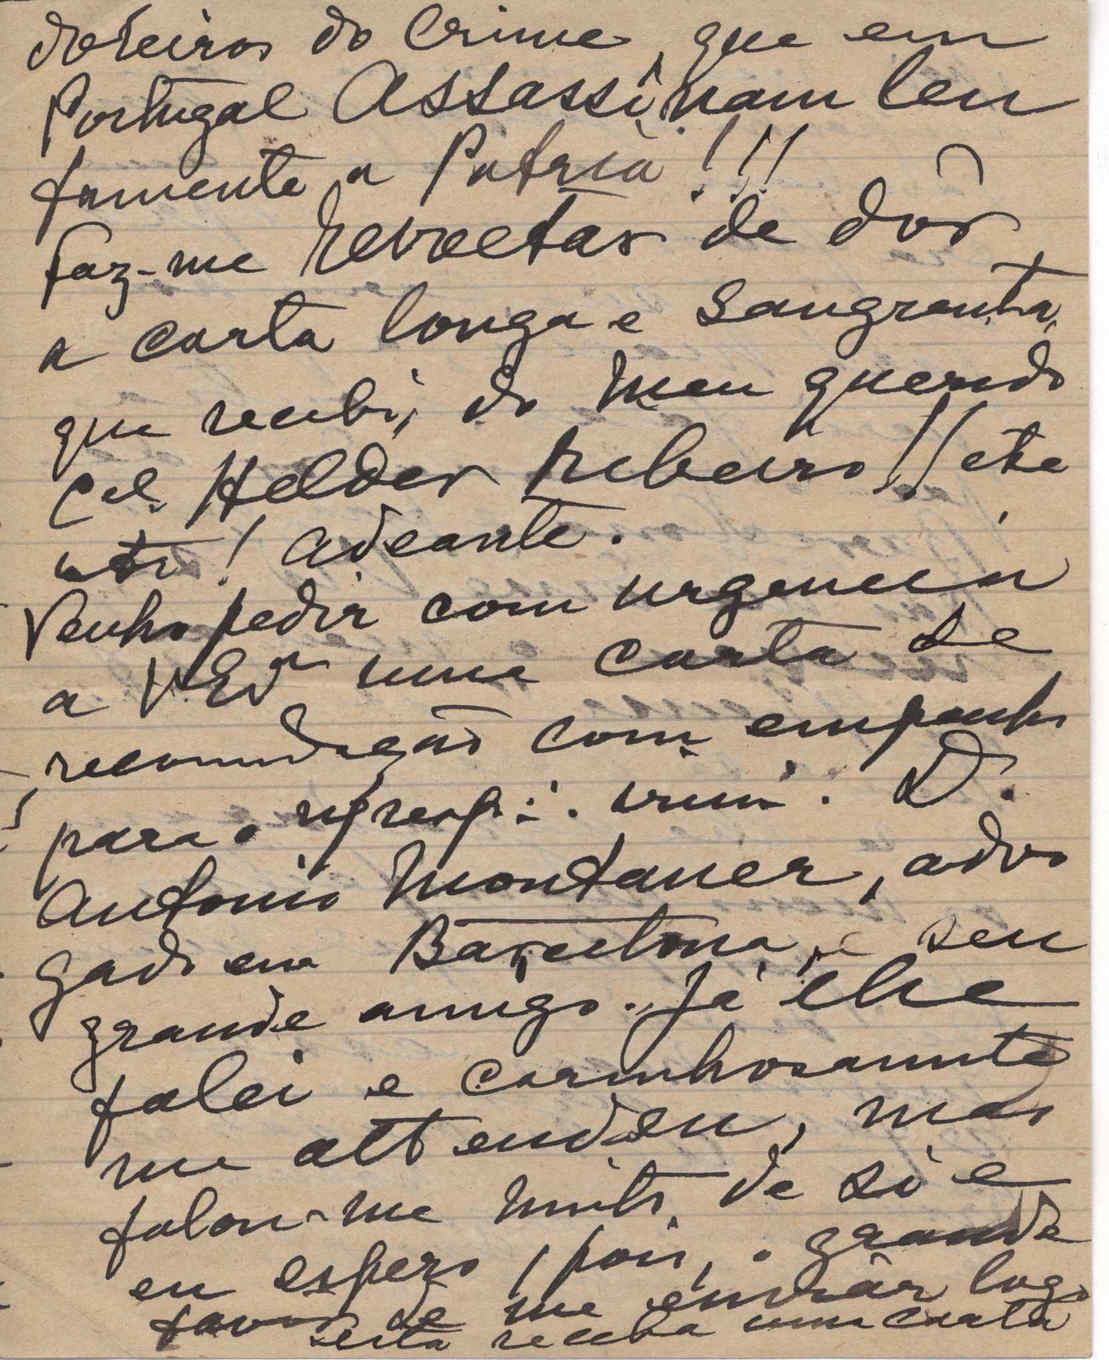 do crime, que em
Portugal Assassinam len
tamente a Patria!!!
faz-me de dôr
a carta longa e sangrenta,
que recebi, do meu querido
Cel. Helder Ribeiro!! etc
etc! adeante.
Venho pedir com urgencia
a V. Exª uma carta de
recomendação com empenho
para o resp∴ irm∴ D.
Antonio Montaner, advo
gado em Barcelona, e seu
grande amigo. Já lhe
falei e carinhosamente
me attendeu, mas
falou-me muito de si e
eu espero, pois, o grande
favor de me enviar logo
esta receba uma carta